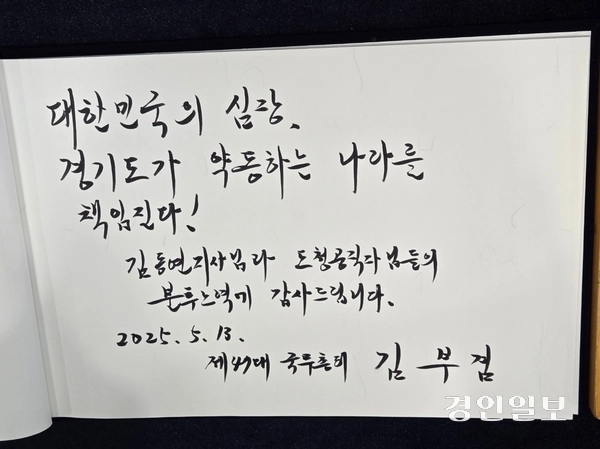 대한민국의 심장,
경기도가 약동하는 나라를
책임진다!
김동연지사님과 도청공직자님들의
분투노력에 감사드립니다.
2025. 5. 13.
제47대 국무총리 김부겸
경인일보